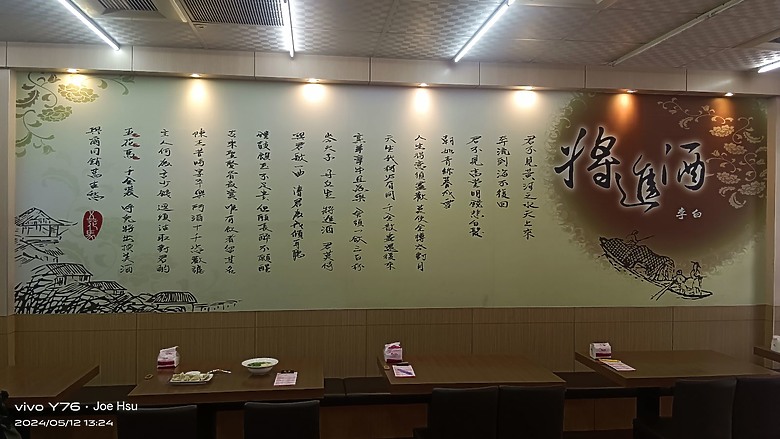 將進酒
李白
君不見黃河之水天上來
奔流到海不復回
君不見高堂明鏡悲白髮
朝如青絲暮成雪
人生得意須盡歡莫使金樽空對月
天生我材必有用 千金散盡還復來
烹羊宰牛且為樂 會須一飲三百杯
岑夫子 丹丘生 將進酒 君莫停
與君歌一曲 請君為我傾耳聽
鐘鼓饌玉不足貴 但願長醉不願醒
古來聖賢皆寂寞 惟有飲者留其名
陳王昔時宴平樂 斗酒十千恣歡謔
主人何為言少錢 逕須沽取對君酌
五花馬 千金裘 呼兒將出換美酒
與爾同銷萬古愁
vivo Y76 · Joe Hsu
2024/05/12 13:24